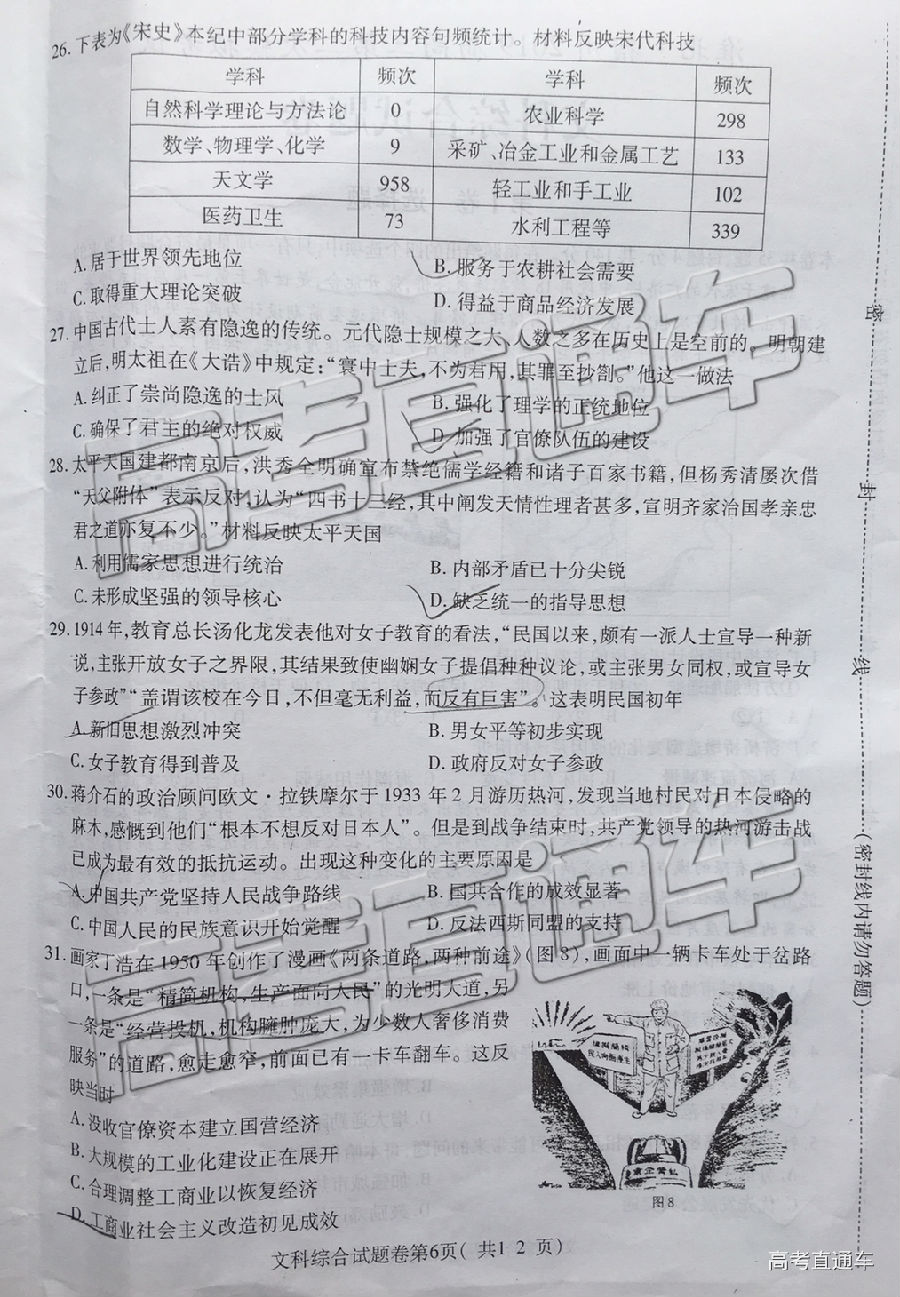 26.下表为《宋史》本纪中部分学科的科技内容句频统计。材料反映宋代科技
学科 频次 学科 频次
自然科学理论与方法论 0 农业科学 298
数学、物理学、化学 9 采矿、冶金工业和金属工艺 133
天文学 958 轻工业和手工业 102
医药卫生 73 水利工程等 339
A.居于世界领先地位 B.服务于农耕社会需要
C.取得重大理论突破 D.得益于商品经济发展
27.中国古代士人素有隐逸的传统。元代隐士规模之大、人数之多在历史上是空前的。明朝建
立后,明太祖在《大诰》中规定:“寰中士夫,不为君用,其罪至抄劄。”他这一做法
A.纠正了崇尚隐逸的士风 B.强化了理学的正统地位
C.确保了君主的绝对权威 D.加强了官僚队伍的建设
28.太平天国建都南京后,洪秀全明确宣布禁绝儒学经籍和诸子百家书籍,但杨秀清屡次借
“天父附体”表示反对,认为“四书十三经,其中阐发天情性理者甚多,宣明齐家治国孝亲忠
君之道亦复不少。”材料反映太平天国
A.利用儒家思想进行统治 B.内部矛盾已十分尖锐
C.未形成坚强的领导核心 D.缺乏统一的指导思想
29.1914年,教育总长汤化龙发表他对女子教育的看法,“民国以来,颇有一派人士宣导一种新
说,主张开放女子之界限,其结果致使幽娴女子提倡种种议论,或主张男女同权,或宣导女
子参政”“盖谓该校在今日,不但毫无利益,而反有巨害”。这表明民国初年
A.新旧思想激烈冲突 B.男女平等初步实现
C.女子教育得到普及 D.政府反对女子参政
30.蒋介石的政治顾问欧文·拉铁摩尔于1933年2月游历热河,发现当地村民对日本侵略的
麻木,感慨到他们“根本不想反对日本人”。但是到战争结束时,共产党领导的热河游击战
已成为最有效的抵抗运动。出现这种变化的主要原因是
A.中国共产党坚持人民战争路线 B.国共合作的成效显著
C.中国人民的民族意识开始觉醒 D.反法西斯同盟的支持
31.画家丁浩在1950年创作了漫画《两条道路,两种前途》(图8),画面中一辆卡车处于岔路
口,一条是“精简机构,生产面向人民”的光明大道,另
一条是“经营投机,机构臃肿庞大,为少数人奢侈消费
服务”的道路,愈走愈窄,前面已有一卡车翻车。这反
映当时
A.没收官僚资本建立国营经济
B.大规模的工业化建设正在展开
C.合理调整工商业以恢复经济
D.工商业社会主义改造初见成效
图8
文科综合试题卷第6页(共1 2 页)
密
封
线
(密封线内请勿答题)
高考直通车
高考直通车
高考直通车